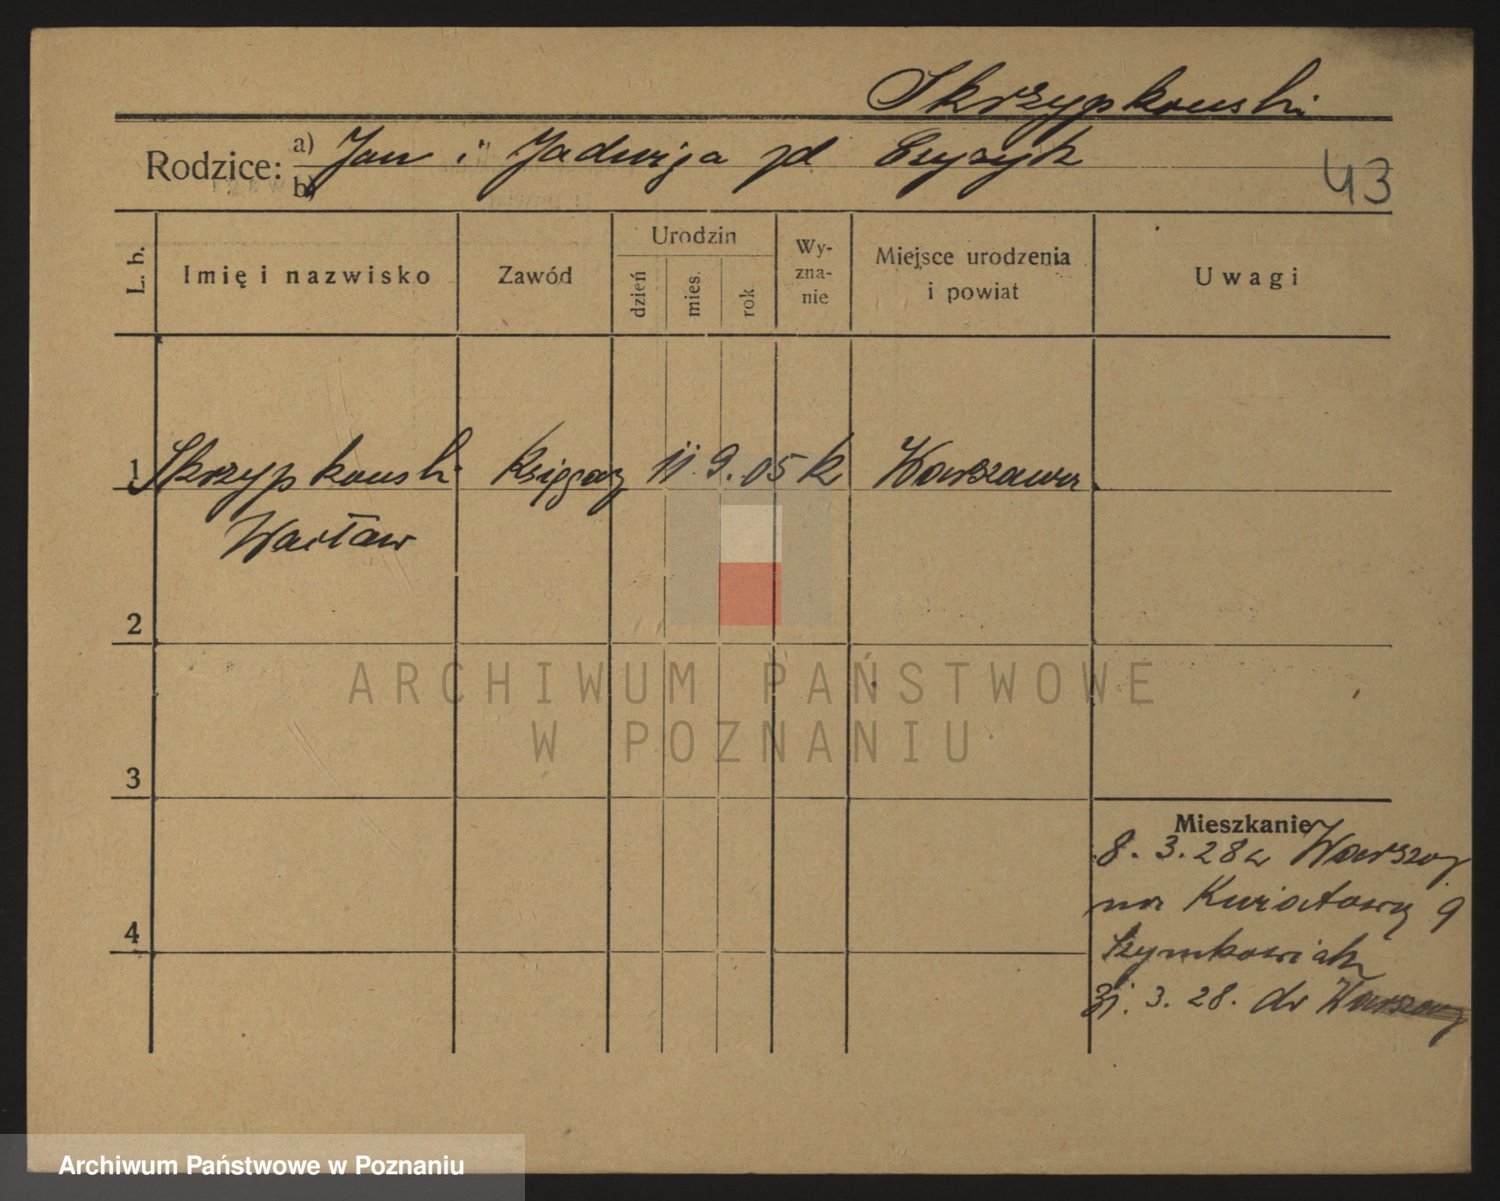 Skrzypkowski
Rodzice: a) Jan i Jadwiga zd
b)
43
L. b.
Imię i nazwisko
Zawód
Urodzin
dzień
mies.
rok
Wy-
zna-
nie
Miejsce urodzenia
i powiat
Uwagi
1 Skrzypkowski Księgarz 11 9. 05 k Warszawa
Wacław
2
ARCHIWUM PAŃSTWOWE
W POZNANIU
3
Mieszkanie
8. 3. 28 z Warszawy
na Kwiatową 9
Szymkowiak
31. 3. 28. do Warszawy
4
Archiwum Państwowe w Poznaniu